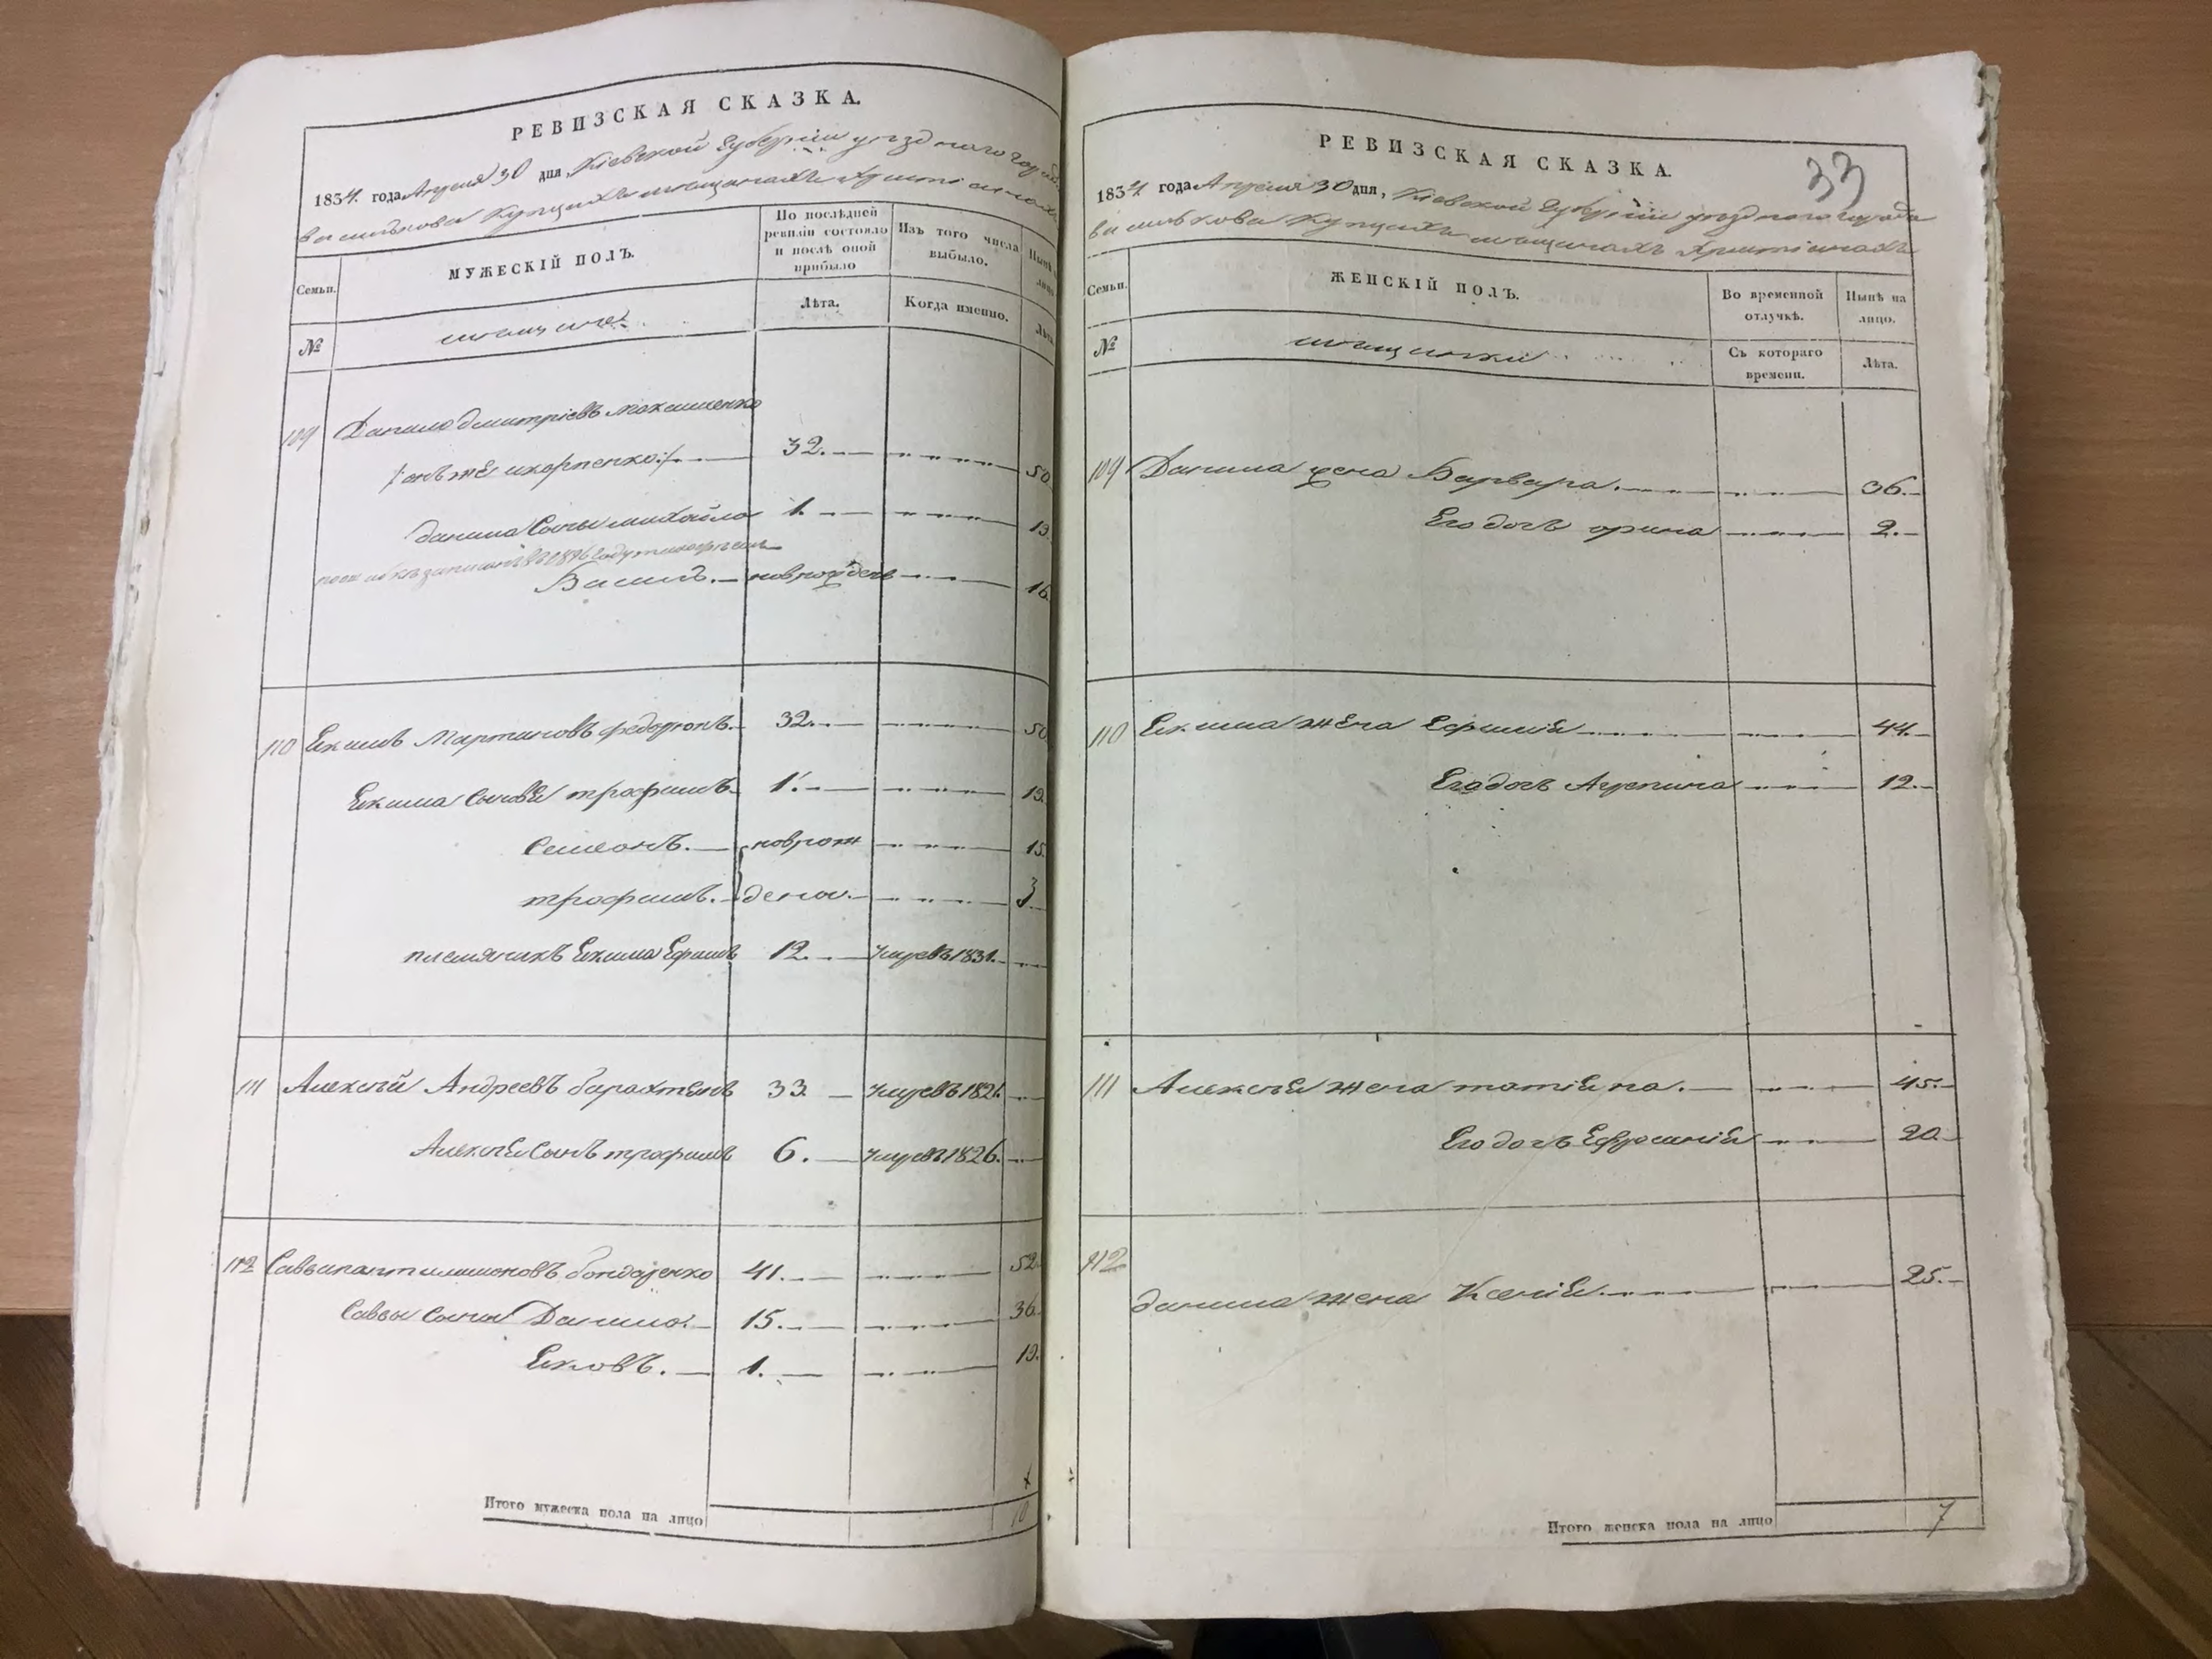 РЕВИЗСКАЯ СКАЗКА.
1834. года Апреля 30 дня, Кіевской Губерніи уезднаго города
василькова Купцахъ мещанахъ Христіанахъ
Семьи.
МУЖЕСКІЙ ПОЛЪ.
По послѣдней ревизіи состояло и послѣ оной прибыло
Изъ того числа выбыло.
№
мещане
Лѣта.
Когда именно.
Лѣта
109 Данило дмитріевъ
онъ же 32. 50
данила Сыны михайло 1. 19.
Василь. новрожден 16.
110 Екимъ Мартиновъ 32. 50
Екима Сыновя трофимъ 1. 19.
Семенъ. новрож 15.
трофимъ. дены. 3
племяникъ Екима Ефимъ 12. Умре въ 1831.
111 Алексѣй Андреевъ 33. Умре въ 1821.
Алексѣя Сынъ трофимъ 6. Умре въ 1826.
112 Савва бондаренко 41. 52
Саввы Сыны Данило. 15. 36.
Яковъ. 1. 19.
Итого мужеска пола на лицо 10
33
РЕВИЗСКАЯ СКАЗКА.
1834. года Апреля 30 дня, Кіевской Губерніи уезднаго города
василькова Купцахъ мещанахъ Христіанахъ
Семьи.
ЖЕНСКІЙ ПОЛЪ.
Во временной отлучкѣ.
Нынѣ на лицо.
№
мещанки
Съ котораго времени.
Лѣта.
109 Данила жена Варвара. 36.
Его дочь орина 2.
110 Екима жена Ефимія 44.
Его дочь Агрепина 12.
111 Алексѣя жена татіяна. 45.
Его дочь Ефросинія 20.
112
данила жена Ксенія. 25.
Итого женска пола на лицо 7